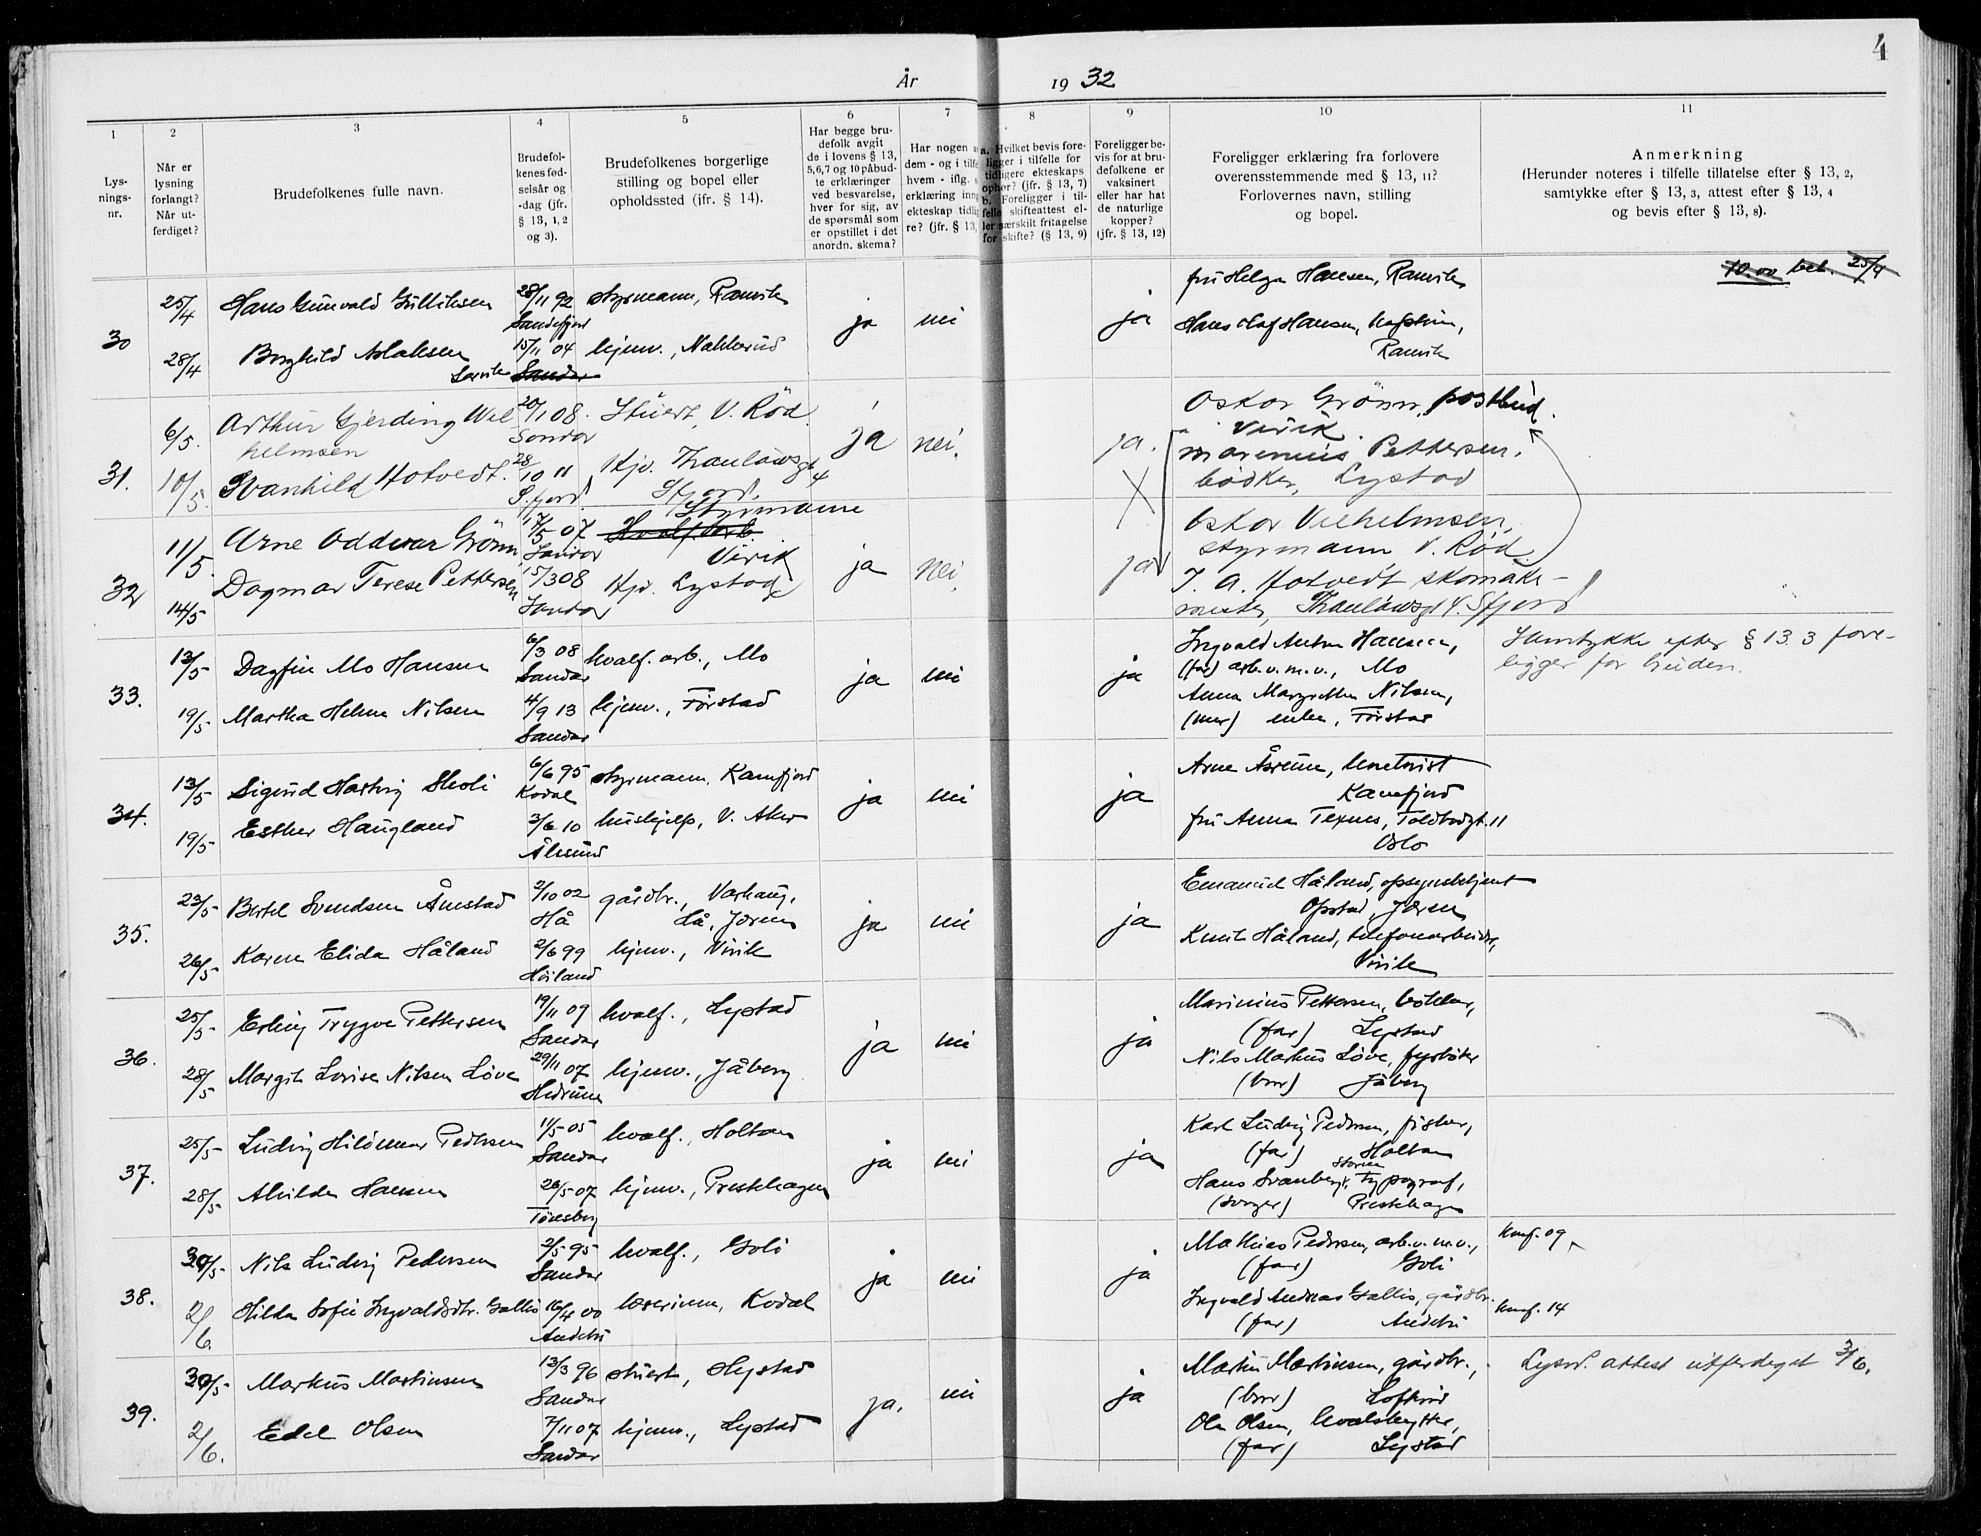 4
År 1932
1
2
3
4
5
6
7
8
9
10
11
Lys-
nings-
nr.
Når er
lysning
forlangt?
Når ut-
ferdiget?
Brudefolkenes fulle navn.
Brudefol-
kenes fød-
selsår og
-dag (jfr.
§ 13, 1, 2
og 3).
Brudefolkenes borgerlige
stilling og bopel eller
opholdssted (jfr. § 14).
Har begge bru-
defolk avgit
de i lovens § 13,
5,6,7 og 10 påbud-
te erklæringer
ved besvarelse,
hver for sig, av
de spørsmål som
er opstillet i det
anordn. skema?
Har nogen a
dem - og i tilfe
hvem - iflg.
erklæring inn
ekteskap tidlig
re? (jfr. § 13,
a. Hvilket bevis fore-
ligger i tilfelle for
tidligere ekteskaps
ophør? (jfr. § 13, 7)
b. Foreligger i til-
felle skifteattest el-
ler særskilt fritagelse
for skifte? (§ 13, 9)
Foreligger be-
vis for at bru-
defolkene er
vaksinert
eller har hat
de naturlige
kopper?
(jfr. § 13, 12)
Foreligger erklæring fra forlovere
overensstemmende med § 13, 11?
Forlovernes navn, stilling
og bopel.
Anmerkning
(Herunder noteres i tilfelle tillatelse efter § 13, 2,
samtykke efter § 13, 3, attest efter § 13, 4
og bevis efter § 13, 8).
30
25/4
28/4
Hans Gunvald Gulliksen
Borghild Aslaksen
Larvik
28/11 92
Sandefjord
15/11 04
Sandar
styrmann, Ranvik
hjemv., Nakkerud
ja
nei
ja
fru Helga Hansen, Ranvik
Hans Olaf Hansen,
Ranvik
10.00 bet. 25/4
31.
6/5.
10/5.
Arthur Gjerding Wil
helmsen
Svanhild Hotvedt.
20/1 08.
Sandar
28/10 11
S.fjord
Stuert, V. Rød
Hjv. Thaulowsgt 4
Sfjord.
ja
nei.
ja.
X
Oskar Grönn, postbud.
Virik
Marenius Pettersen,
bødker, Lystad
32
11/5.
14/5
Arne Oddvar Grönn
Dagmar Terese Pettersen
17/5 07
Sandar
15/3 08
Sandar
Styrmann
Hvalf. arb.
Virik
Hjv. Lystad
ja
nei.
ja
Oskar Vilhelmsen,
styrmann V. Rød
J. A. Hotvedt skomaker-
mester, Thaulowsgt 4. Sfjord
33.
13/5
19/5
Dagfin Mo Hansen
Martha Helene Nilsen
6/3 08
Sandar
4/9 13
Sandar
hvalf. arb., Mo
hjemv., Førstad
ja
nei
ja
Ingvald Anton Hansen,
(far) arb. v. m. v., Mo
Anna Margrethe Nilsen,
(mor) enke, Førstad
Samtykke efter § 13 3 fore-
ligger for bruden.
34.
13/5
19/5
Sigurd Hartvig Skoli
Esther Haugland
6/6 95
Kodal
3/6 10
Ålesund
styrmann, Kamfjord
hushjelp, V. Aker
ja
nei
ja
Arne Åsrum,
Kamfjord
fru Anna Texnes, Toldbodgt. 11
Oslo
35.
23/5
26/5
Bertel Svendsen Ånestad
Karen Elida Håland
2/10 02
Hå
2/6 99
Høiland
gårdbr., Varhaug,
Hå, Jæren
hjemv., Virik
ja
nei
ja
Emanuel Håland, opsynsbetjent
Opstad, Jæren
Knut Håland, telefonarbeider,
Virik
36.
25/5
28/5
Erling Trygve Pettersen
Margit Lovise Nilsen Løve
19/11 09
Sandar
29/11 07
Hedrum
hvalf., Lystad
hjemv., Jåberg
ja
nei
ja
Marinius Pettersen, bøkker,
(far) Lystad
Nils Markus Løve, fyrbøter
(bror) Jåberg
37.
25/5
28/5
Ludvig Hildemar Pedersen
Alvilde Hansen
11/5 05
Sandar
26/5 07
Tønsberg
hvalf., Holtan
hjemv., Prestehagen
ja
nei
ja
Karl Ludvig Pedersen, fisker,
(far) Holtan
Storm
Hans Svanberg, typograf,
(svoger) Prestehagen
38.
30/5
2/6.
Nils Ludvig Pedersen
Hilda Sofie Ingvaldsdtr. Gallis
2/5 95
Sandar
16/4 00
Andebu
hvalf., Goli
lærerinne, Kodal
ja
nei
ja
Mathias Pedersen, arb. v. m. v.,
(far) Goli
Ingvald Andreas Gallis, gårdbr.
(far) Andebu
Konf. 09
Konf. 14
39.
30/5
2/6.
Markus Martinsen
Edel Olsen
13/3 96
Sandar
7/11 07
Sandar
stuert, Hystad
hjemv., Lystad
ja.
nei
ja
Martin Martinsen, gårdbr.,
(bror) Loftsrød
Ole Olsen, hvalskytter,
(far) Lystad
Lysn. attest utferdiget 3/6.